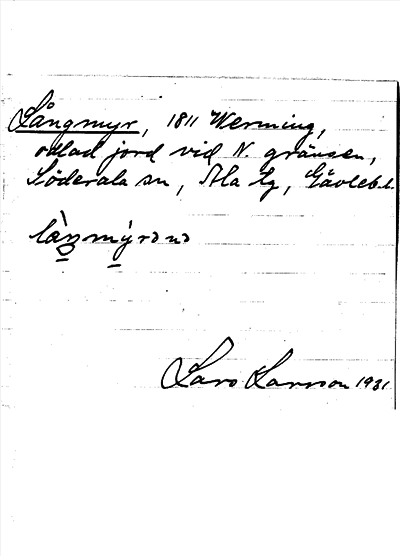 Långmyr, 1811 Werming,
odlad jord vid N. gränsen,
Söderala sn, Ala tg, Gävleb.l.
Lars Larsson 1931